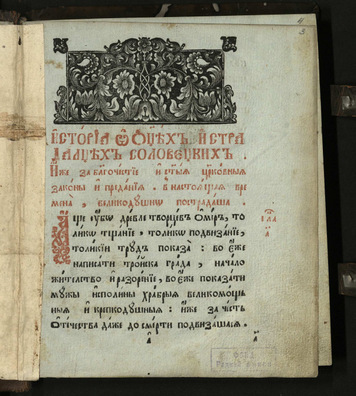 И҆сто́рїа ѡ҆ ѻ҆ц҃ѣ́хъ, и҆ стра
далцѣхъ соловецкихъ.
И҆́же за бл҃гоче́стїе и҆ ст҃ы́ѧ цр҃ко́вныѧ
зако́ны и҆ преда́нїѧ. в настоѧщаѧ вре
мена̀, великодꙋ́шнѡ пострада́ша.
А҆́ще ᲂу҆́бѡ дре́вле творе́цъ О҆ми́ръ, то
ли́кѡ тща́нїе, толи́кѡ подвиза́нїе,
толи́кїи трꙋ́дъ показа̀: во є҆́же
написа́ти тро́йска гра́да, нача́ло
жи́телство и҆ разоре́нїе, во є҆́же показа́ти
мꙋ́жы и҆споли́ны хра́брыѧ великомо́щъ
ныѧ и҆ крѣпкодꙋ́шныѧ: и҆́же за че́сть
Ѻ҆те́чества да́же до сме́рти подвиза́шасѧ.
гла
а҃
а҃